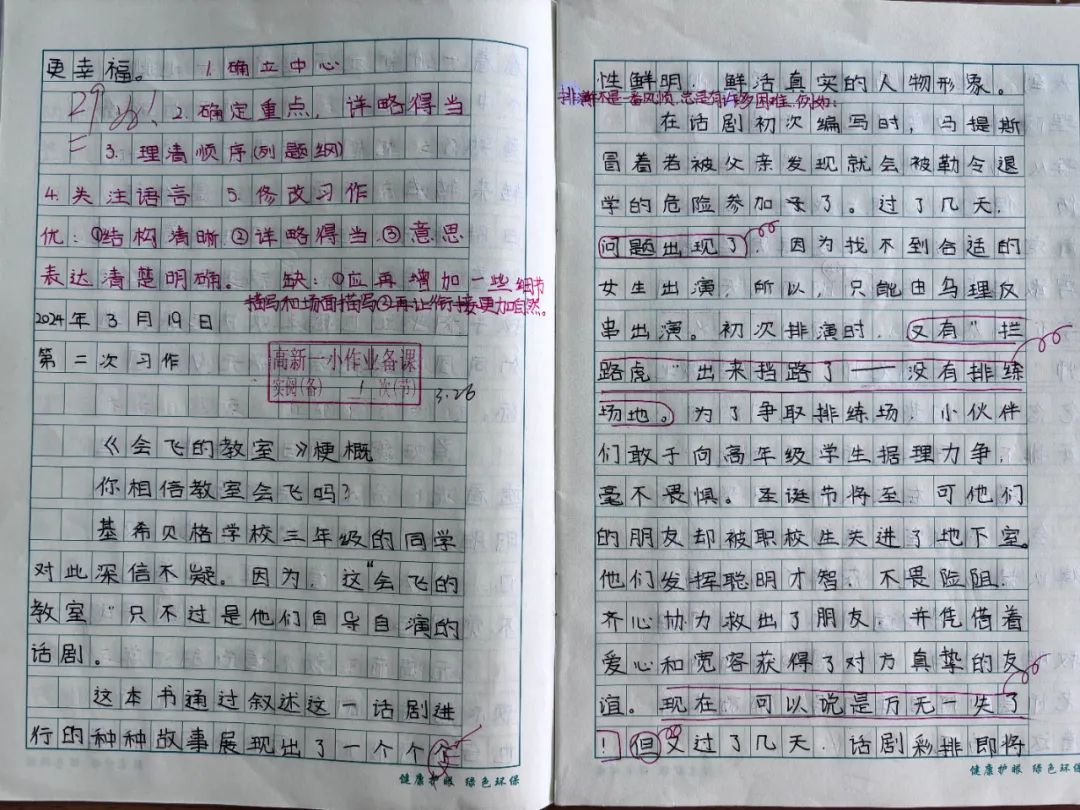 更幸福。 1.确立中心
29 2.确定重点,详略得当
3.理清顺序(列题纲)
4.关注语言 5.修改习作
优:①结构清晰②详略得当.③意思
表达清楚明确。 缺:①应再增加一些细节
描写和场面描写②再让衔接更加自然。
2024年3月19日
第二次习作
高新一小作业备课
实阅(备) 1 次(节)
3.26
《会飞的教室》梗概
你相信教室会飞吗?
基希贝格学校三年级的同学
对此深信不疑。因为,这“会飞的
教室”只不过是他们自导自演的
话剧。
这本书通过叙述这一话剧进
行的种种故事展现出了一个个个
健康护眼 绿色环保
性鲜明,鲜活真实的人物形象。
排演不是一番风顺,总是有许多困难,例如:
在话剧初次编写时,马提斯
冒着若被父亲发现就会被勒令退
学的危险参加了。过了几天,
问题出现了,因为找不到合适的
女生出演,所以,只能由乌理反
串出演。初次排演时,又有“拦
路虎”出来挡路了——没有排练
场地。为了争取排练场,小伙伴
们敢于向高年级学生据理力争,
毫不畏惧。圣诞节将至,可他们
的朋友却被职校生关进了地下室。
他们发挥聪明才智,不畏险阻,
齐心协力救出了朋友,并凭借着
爱心和宽容获得了对方真挚的友
谊。现在,可以说是万无一失了
!但又过了几天,话剧彩排即将
健康护眼 绿色环保